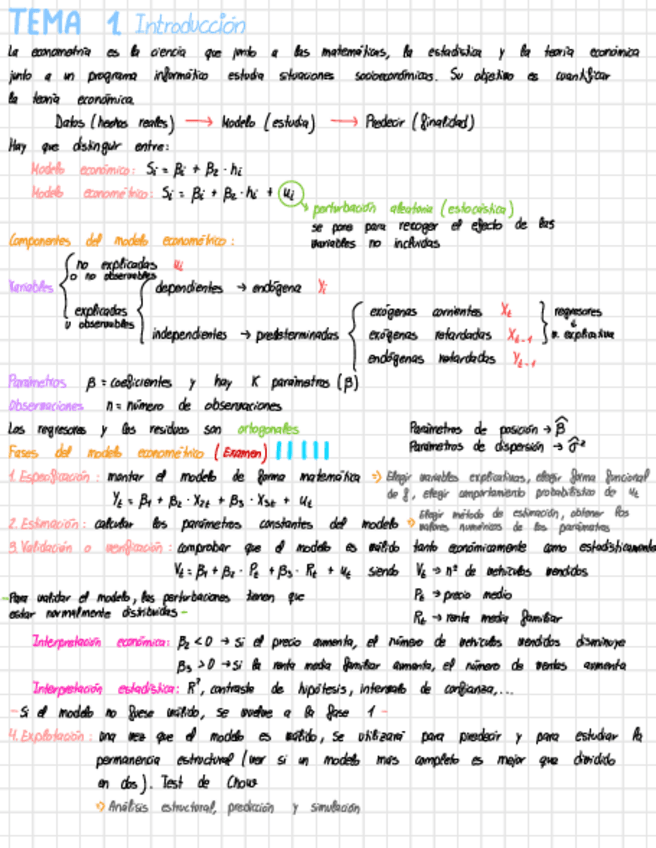 TEMA 1 Introducción
La econometría es la ciencia que junto a las matemáticas, la estadística y la teoría económica
junto a un programa informático estudia situaciones socioeconómicas. Su objetivo es cuantificar
la teoría económica.
Datos (hechos reales) → Modelo (estudia) → Predecir (finalidad)
Hay que distinguir entre:
Modelo económico: Si = βi + β2 · hi
Modelo econométrico: Si = βi + β2 · hi + ui
perturbación aleatoria (estocástica)
se pone para recoger el efecto de las
variables no incluidas
Componentes del modelo econométrico:
Variables
no explicadas ui
o no observables
explicadas
u observables
dependientes → endógena Yi
independientes → predeterminadas
exógenas corrientes Xt
exógenas retardadas Xt-1
endógenas retardadas Yt-1
regresores
v. explicativa
Parámetros β = coeficientes y hay K parámetros (β)
Observaciones n = número de observaciones
Los regresores y los residuos son ortogonales
Parámetros de posición → β̂
Parámetros de dispersión → σ̂²
Fases del modelo econométrico (Examen)
1. Especificación: montar el modelo de forma matemática => Elegir variables explicativas, elegir forma funcional
de f, elegir comportamiento probabilístico de ut
Yt = β1 + β2 · X2t + β3 · X3t + ut
2. Estimación: calcular los parámetros constantes del modelo => Elegir método de estimación, obtener los
valores numéricos de los parámetros
3. Validación o verificación: comprobar que el modelo es válido tanto económicamente como estadísticamente
Vt = β1 + β2 · Pt + β3 · Rt + ut siendo Vt → nº de vehículos vendidos
Pt → precio medio
Rt → renta media familiar
-Para validar el modelo, las perturbaciones tienen que
estar normalmente distribuidas-
Interpretación económica: β2 < 0 → si el precio aumenta, el número de vehículos vendidos disminuye
β3 > 0 → si la renta media familiar aumenta, el número de ventas aumenta
Interpretación estadística: R², contraste de hipótesis, intervalo de confianza,...
- Si el modelo no fuese válido, se vuelve a la fase 1 -
4. Explotación: una vez que el modelo es válido, se utilizará para predecir y para estudiar la
permanencia estructural (ver si un modelo más completo es mejor que dividido
en dos). Test de Chow
=> Análisis estructural, predicción y simulación